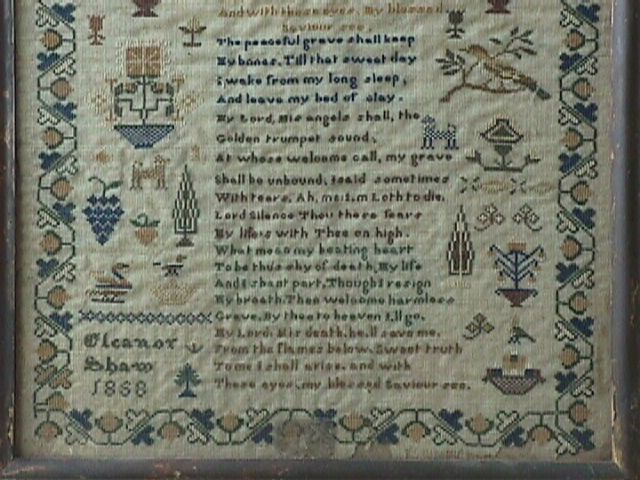 And with these eyes, My blessed
Saviour see.
The peaceful grave shall keep
My bones, Till that sweet day
I, wake from my long sleep,
And leave my bed of clay.
My Lord, His angels shall, the
Golden trumpet sound,
At whose welcome call, my grave
Shall be unbound, I said sometimes
With tears, Ah, me: I,m Loth to die,
Lord Silence Thou these fears
My life,s with Thee on high.
What mean my beating heart
To be thus shy of death, My life
And I shant part, Though I resign
My breath, Then welcome harmless
Grave, By thee to heaven I,ll go.
My Lord, His death, he,ll save me,
From the flames below. Sweet truth
To me I shall arise, and with
These eyes, my blessed Saviour see.
Eleanor
Shaw
1868